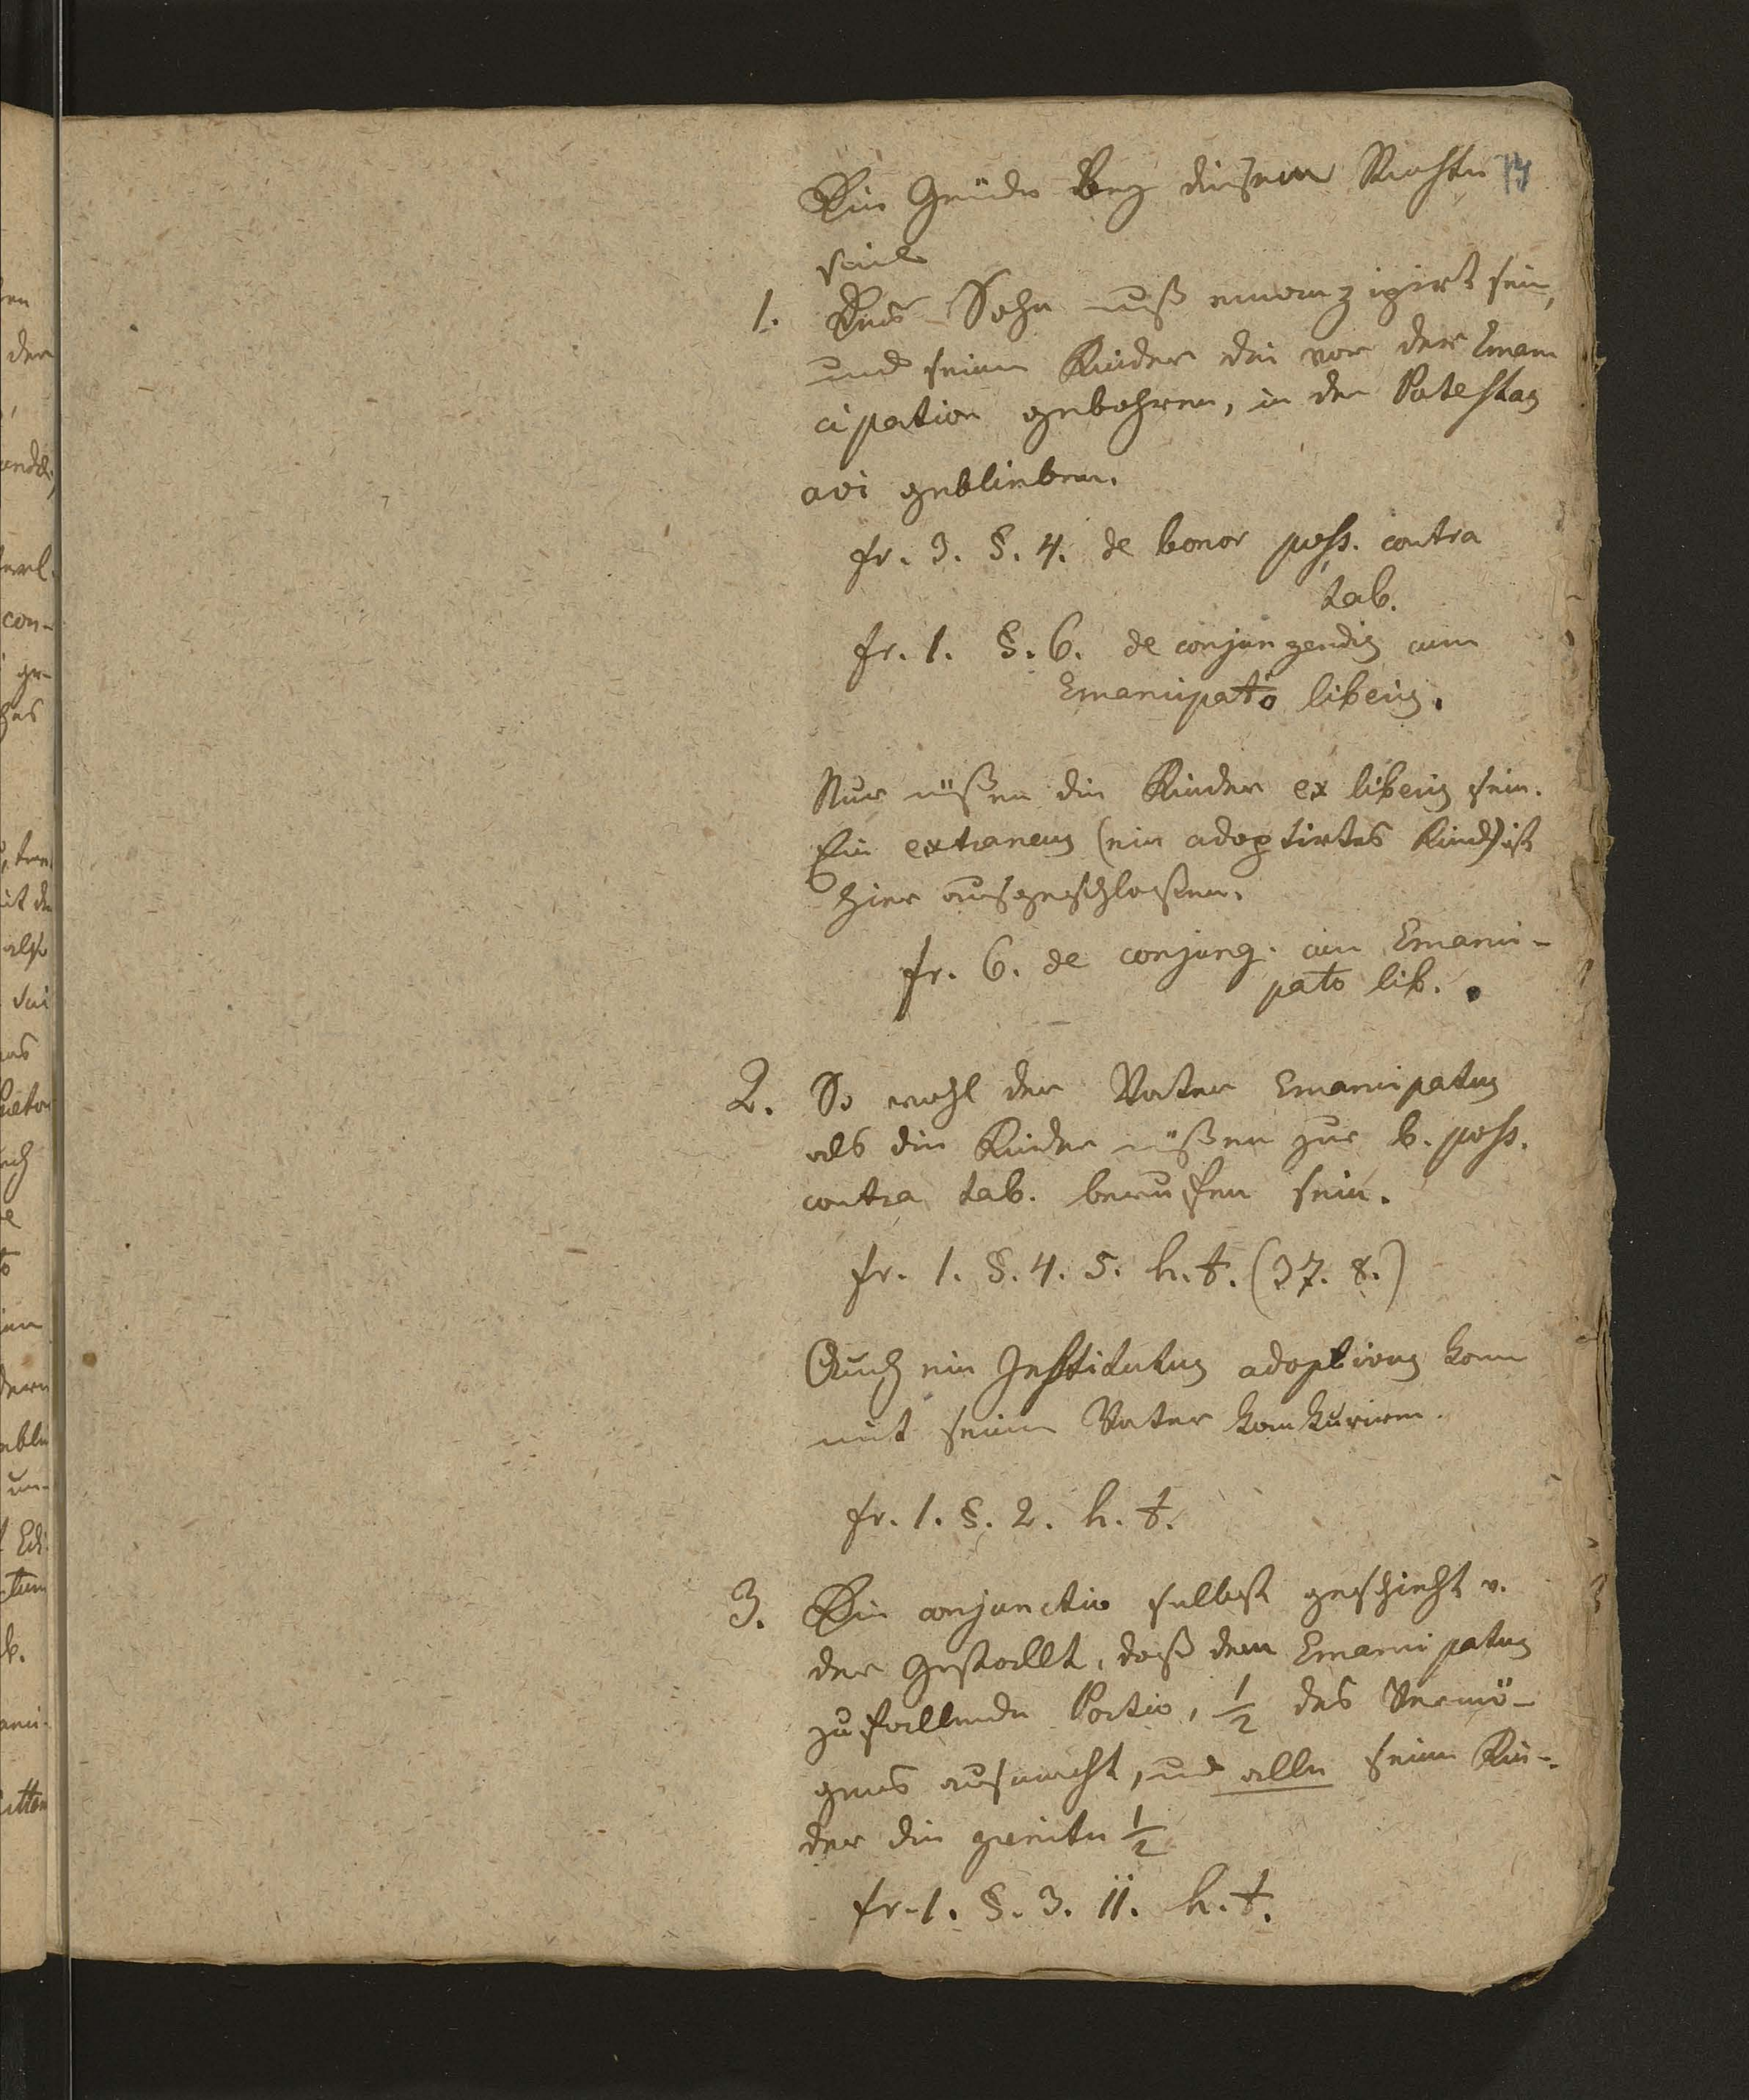 Die Gründe bey diesem Rechte 14
sind
1. Der Sohn muß emanzipirt sein,
und seine Kinder die vor der Eman
cipation gebohren, in der Potestas
avi geblieben.
fr. 3. §. 4. de bonor poss. contra
tab.
fr. 1. §. 6. de conjungendis cum
Emancipato liberis.
Nur müßen die Kinder ex liberis sein.
Ein extraneus (ein adoptirtes Kind) ist
hier ausgeschloßen.
fr. 6. de conjung. cum Emanci-
pato lib.
2. So wohl der Vater Emancipatus
als die Kinder müßen zur b. poss.
contra tab. berufen sein.
fr. 1. §. 4. 5. h. t. (37. 8.)
Auch ein Institutus adoptivus kann
mit seinem Vater konkuriren.
fr. 1. §. 2. h. t.
3. Die conjunctio selbst geschieht v.
der Gestallt, daß dem Emancipatus
zufallende Portio, 1/2 des Vermö-
gens ausmacht, und alle seine Kin-
der die zweite 1/2
fr. 1. §. 3. 11. h. t.